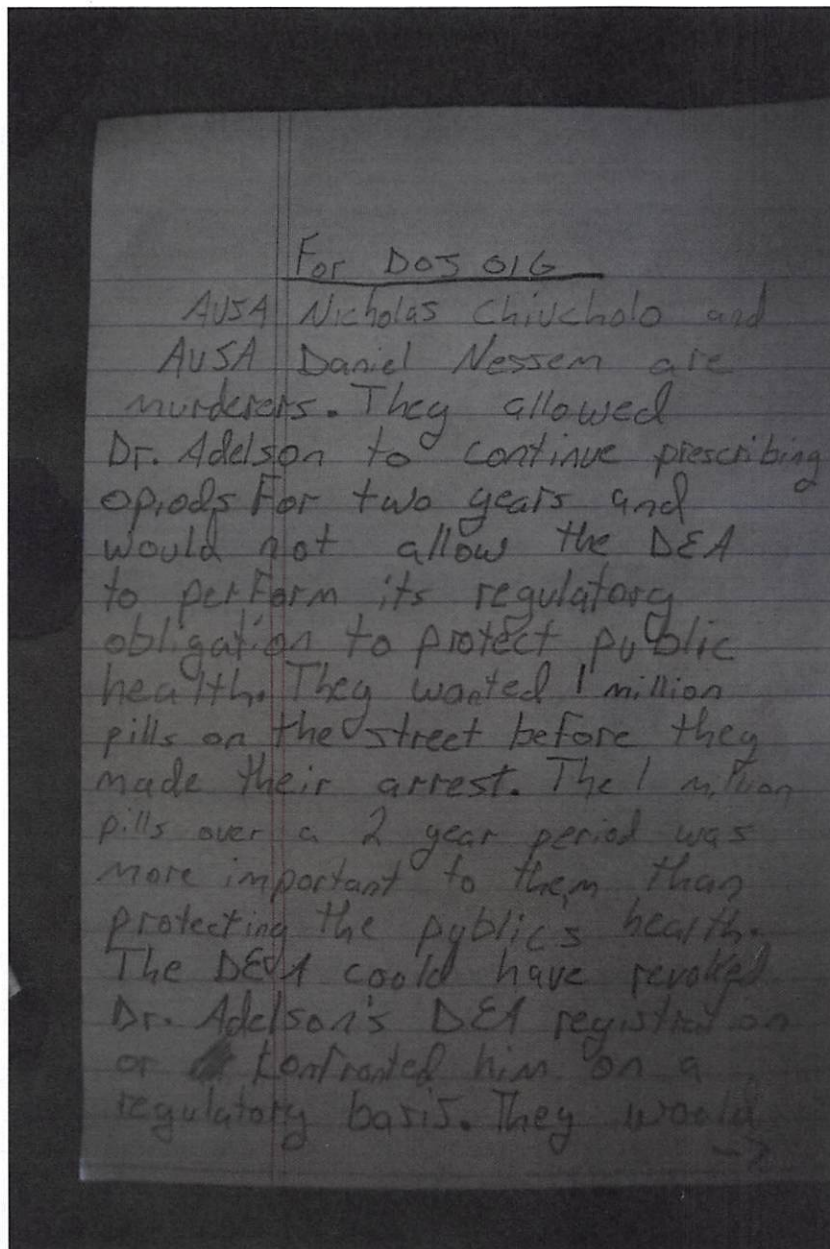 For DOJ OIG
AUSA Nicholas Chiucholo and
AUSA Daniel Nessem are
murderers. They allowed
Dr. Adelson to continue prescribing
opiods For two years and
would not allow the DEA
to perform its regulatory
obligation to protect public
health. They wanted 1 million
pills on the street before they
made their arrest. The 1 million
pills over a 2 year period was
more important to them than
protecting the public's health.
The DEA could have revoked
Dr. Adelson's DEA registration
or confronted him on a
regulatory basis. They would
->